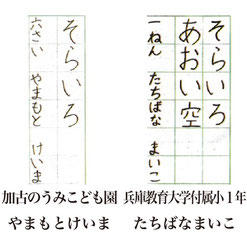 そらいろ
あおい空
一ねん たちばな まいこ
そらいろ
六さい やまもと けいま
兵庫教育大学付属小1年
たちばなまいこ
加古のうみこども園
やまもとけいま